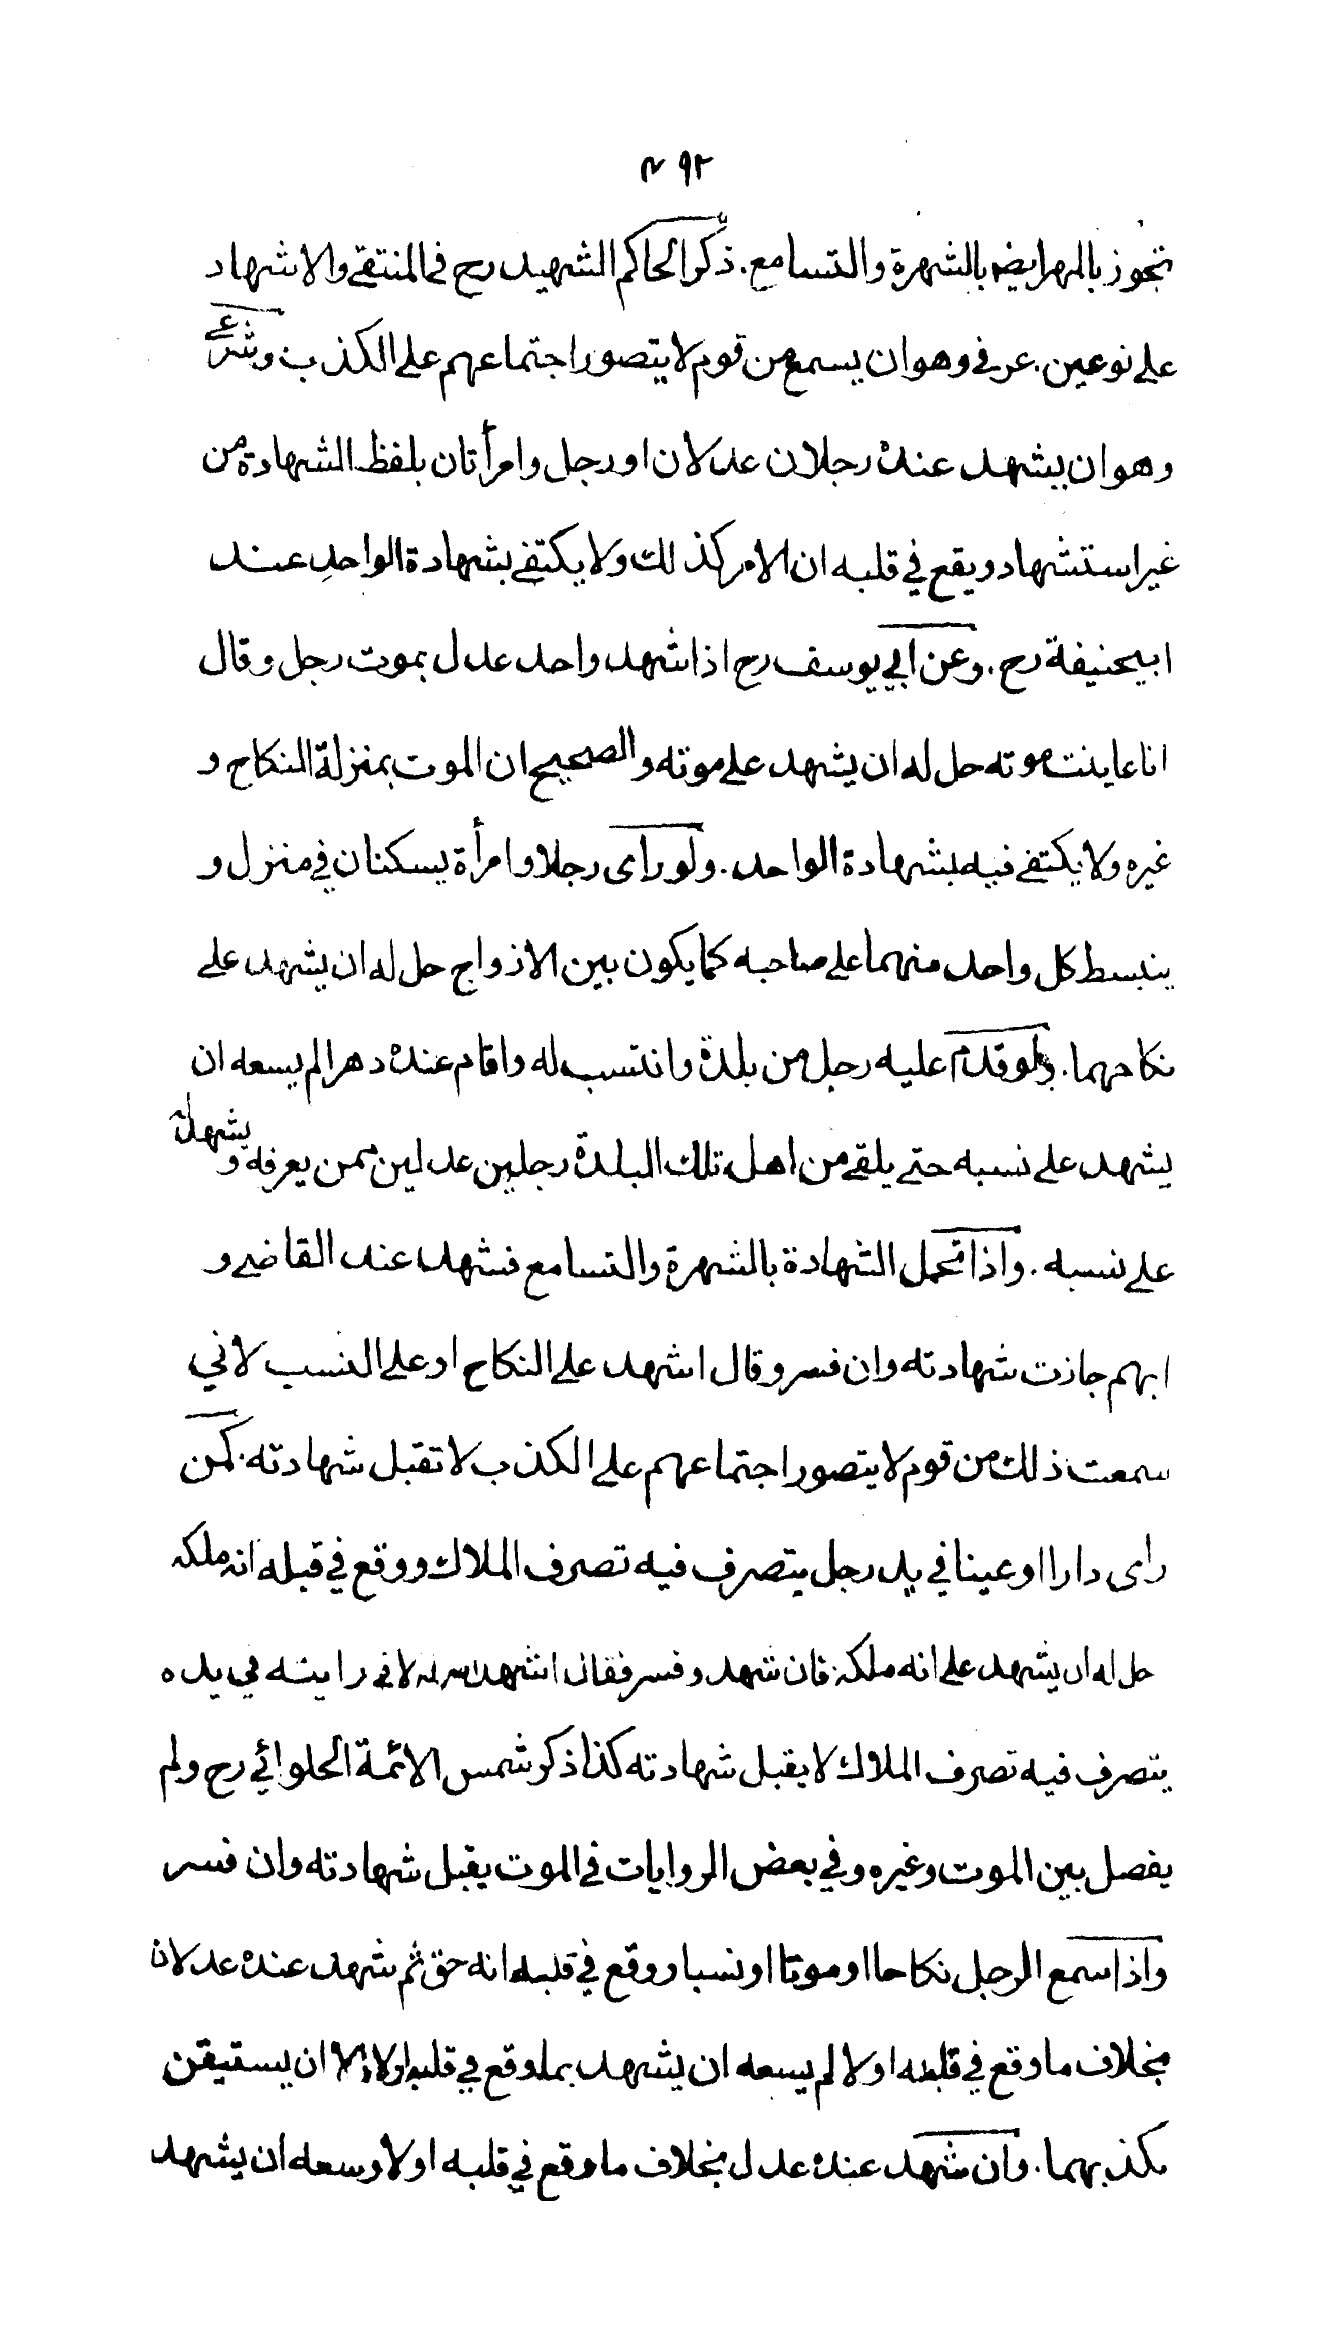 ٤٩٢
تجوز بالمهر ايضا بالشهرة والتسامع . ذكر الحاكم الشهيد رح فى المنتقى والاشهاد
على نوعين . عرفي وهو ان يسمع من قوم لا يتصور اجتماعهم على الكذب وشرعي
وهو ان يشهد عنده رجلان عدلان او رجل وامرأتان بلفظ الشهادة من
غير استشهاد ويقع في قلبه ان الامر كذلك ولا يكتفى بشهادة الواحد عند
ابيحنيفة رح . وعن ابي يوسف رح اذا شهد واحد عدل بموت رجل وقال
انا عاينت موته حل له ان يشهد على موته والصحيح ان الموت بمنزلة النكاح و
غيره ولا يكتفى فيه بشهادة الواحد . ولو رأى رجلا وامرأة يسكنان في منزل و
ينبسط كل واحد منهما على صاحبه كما يكون بين الازواج حل له ان يشهد على
نكاحهما . ولو قدم عليه رجل من بلدة وانتسب له واقام عنده دهرا لم يسعه ان
يشهد على نسبه حتى يلقى من اهل تلك البلدة رجلين عدلين ممن يعرفه ويشهدان
على نسبه . واذا تحمل الشهادة بالشهرة والتسامع فشهد عند القاضي و
ابهم جازت شهادته وان فسر وقال اشهد على النكاح او على النسب لاني
سمعت ذلك من قوم لا يتصور اجتماعهم على الكذب لا تقبل شهادته . كمن
رأى دارا او عينا في يد رجل يتصرف فيه تصرف الملاك ووقع في قبله انه ملكه
حل له ان يشهد على انه ملكه . فان شهد وفسر فقال اشهد انه له لاني رايته في يده
يتصرف فيه تصرف الملاك لا يقبل شهادته كذا ذكر شمس الائمة الحلوائي رح ولم
يفصل بين الموت وغيره وفي بعض الروايات فى الموت يقبل شهادته وان فسر
واذا سمع الرجل نكاحا او موتا او نسبا ووقع في قلبه انه حق ثم شهد عنده عدلان
بخلاف ما وقع في قلبه اولا لم يسعه ان يشهد بما وقع في قلبه اولا الا ان يستيقن
بكذبهما . وان شهد عنده عدل بخلاف ما وقع في قلبه اولا وسعه ان يشهد